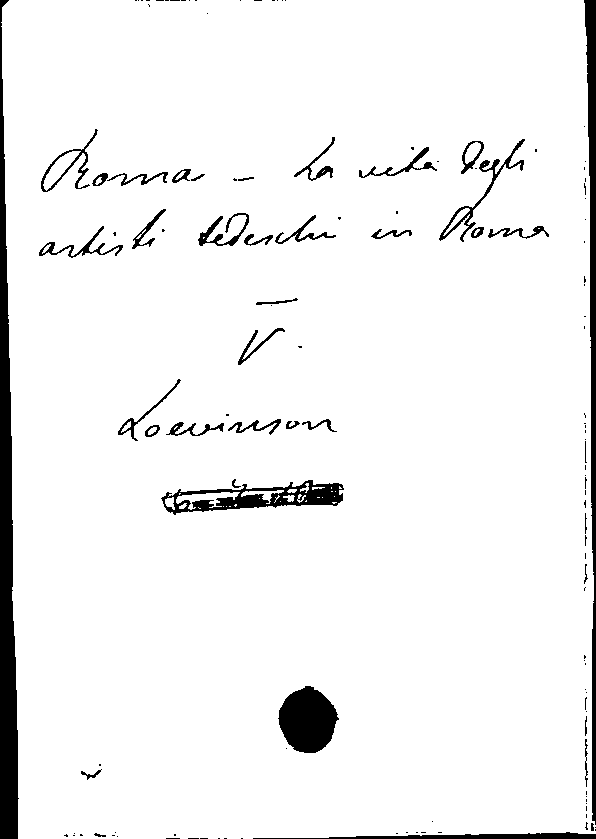 Roma - La vita degli
artisti tedeschi in Roma
—
V.
Loewinson